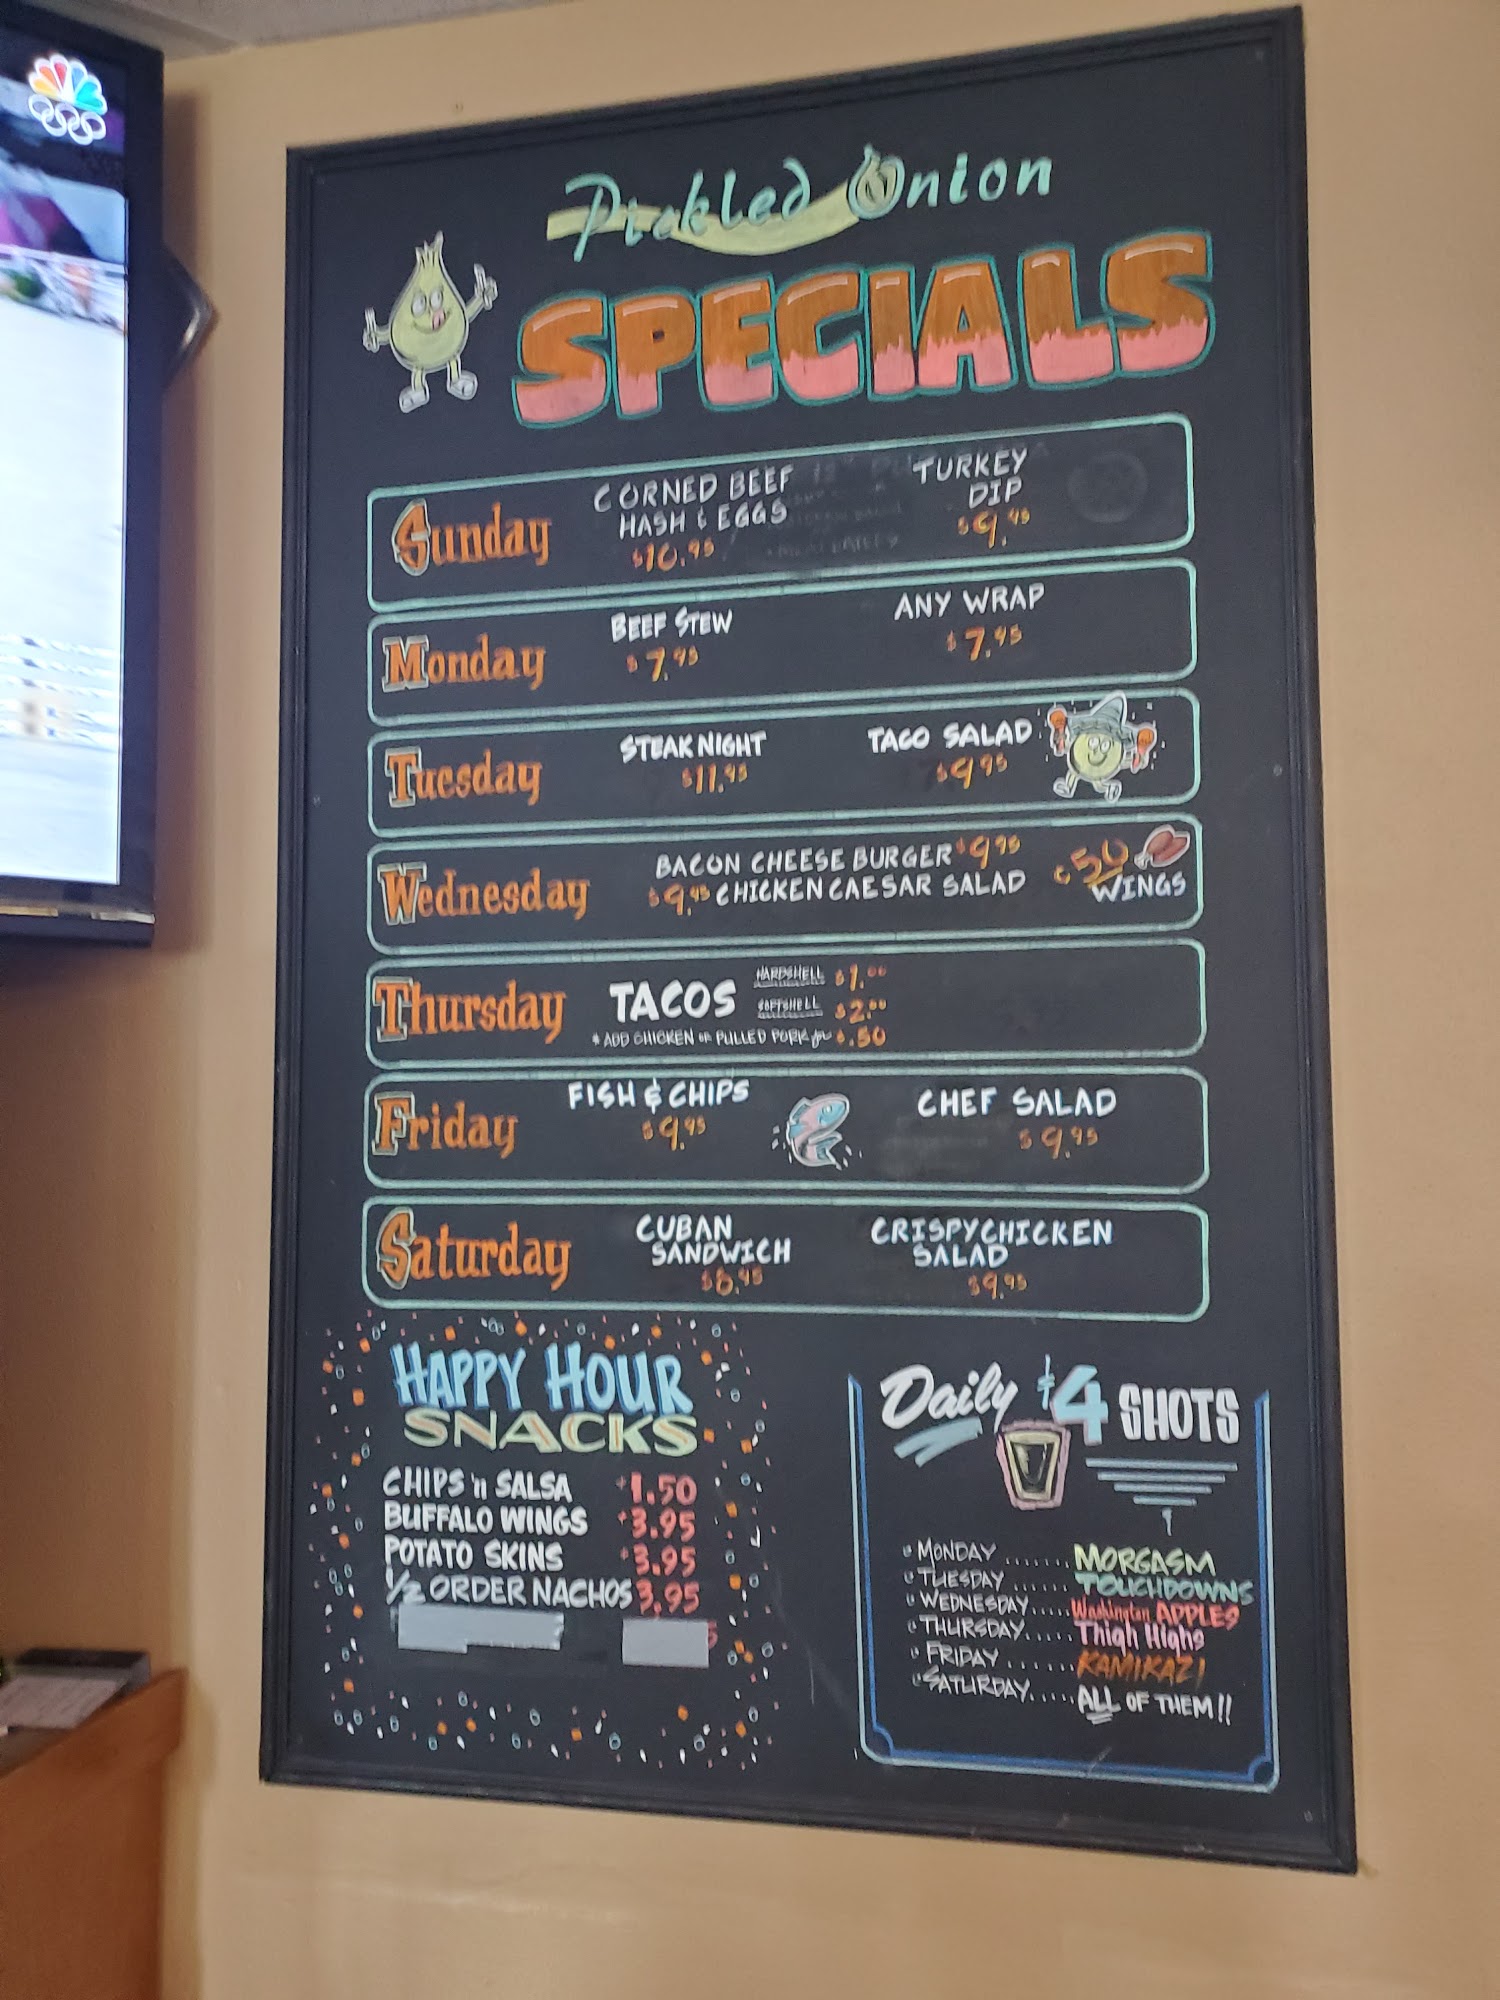 Pickled Onion
SPECIALS
Sunday
CORNED BEEF
HASH & EGGS
$10.95
TURKEY
DIP
$9.95
Monday
BEEF STEW
$7.95
ANY WRAP
$7.95
Tuesday
STEAK NIGHT
$11.95
TACO SALAD
$9.95
Wednesday
BACON CHEESE BURGER $9.95
$9.95 CHICKEN CAESAR SALAD
¢50
WINGS
Thursday
TACOS
HARDSHELL $1.00
SOFTSHELL $2.00
* ADD CHICKEN or PULLED PORK for $.50
Friday
FISH & CHIPS
$9.95
CHEF SALAD
$9.95
Saturday
CUBAN
SANDWICH
CRISPY CHICKEN
SALAD
$9.95
HAPPY HOUR
SNACKS
CHIPS 'n SALSA $1.50
BUFFALO WINGS $3.95
POTATO SKINS $3.95
1/2 ORDER NACHOS 3.95
Daily $4 SHOTS
MONDAY ...... MORGASM
TUESDAY ...... TOUCHDOWNS
WEDNESDAY..... Washington APPLES
THURSDAY..... Thigh Highs
FRIDAY ...... KAMIKAZI
SATURDAY..... ALL OF THEM!!